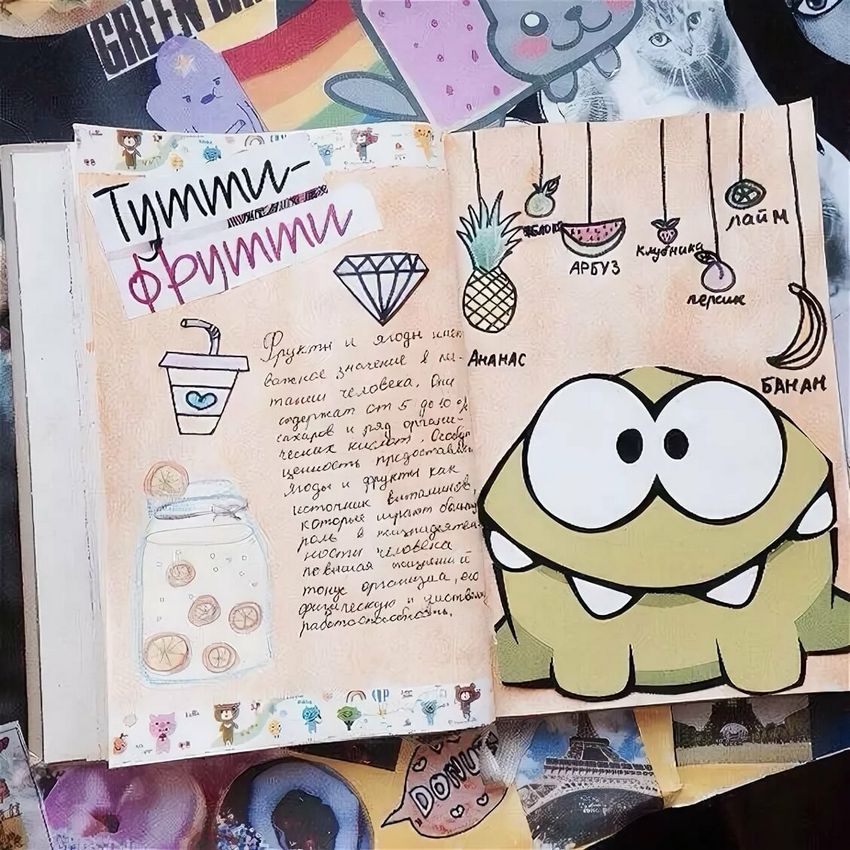 GREEN DAY
Тутти-
фрутти
Фрукты и ягоды имею
важное значение в пи-
тании человека. Они
содержат от 5 до 10 %
сахаров и ряд органи-
ческих кислот. Особую
ценность предоставляют
ягоды и фрукты как
источник витаминов,
которые играют большую
роль в жизнидеятель
ности человека
повышая жизненный
тонус организма, его
физическую и умственную
работоспособность.
ЯБЛОКО
АРБУЗ
клубника
лайм
персик
АНАНАС
БАНАН
DONUT